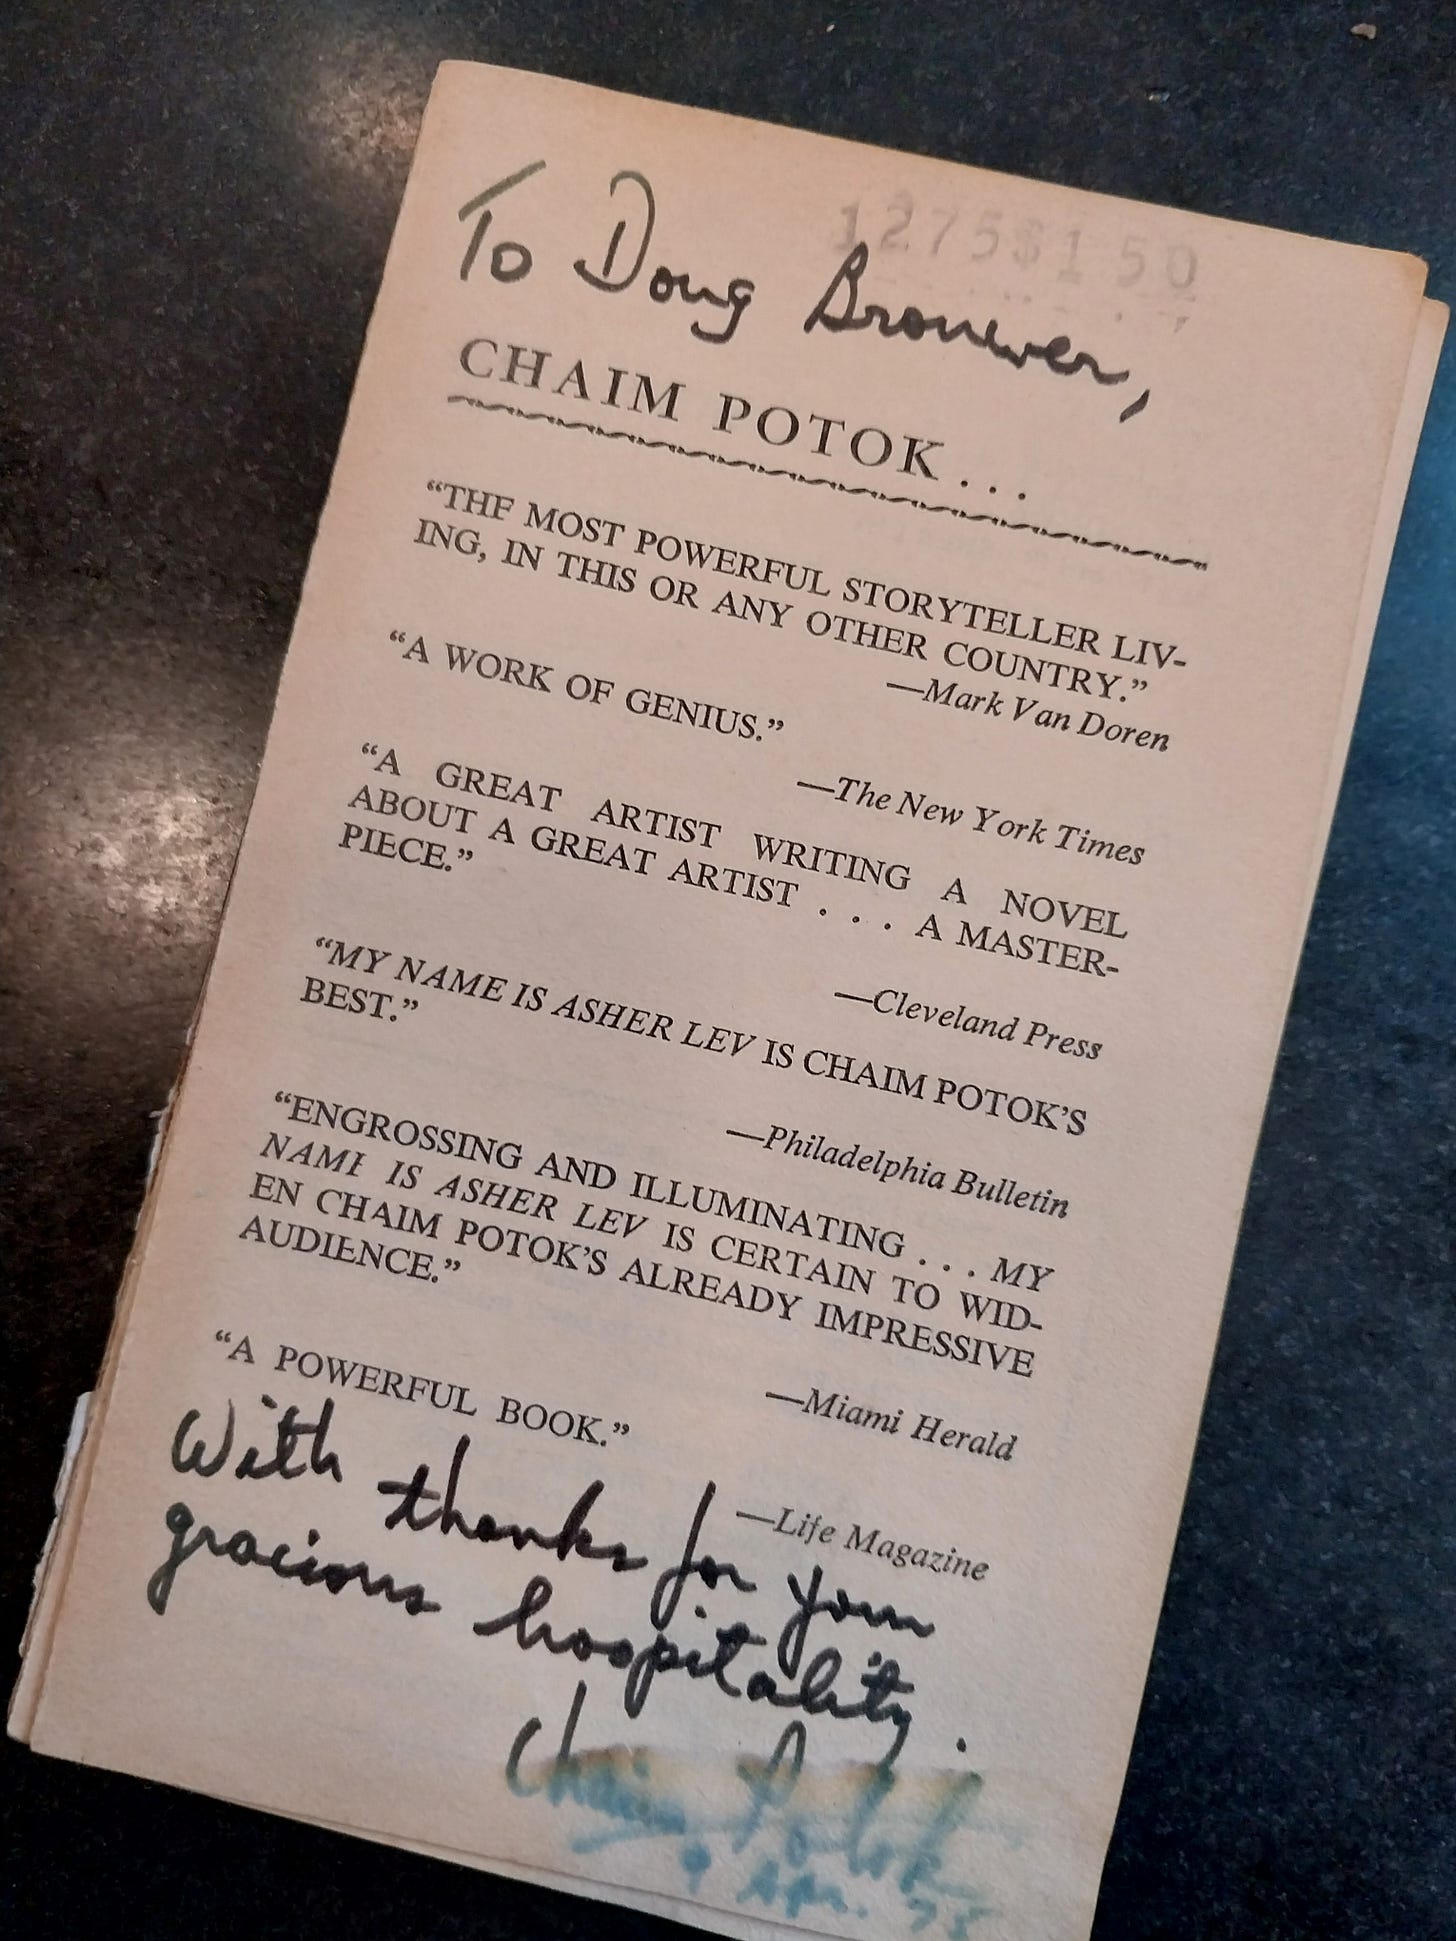 1275$150
To Doug Brouwer,
CHAIM POTOK...
“THE MOST POWERFUL STORYTELLER LIV-
ING, IN THIS OR ANY OTHER COUNTRY.”
—Mark Van Doren
“A WORK OF GENIUS.”
—The New York Times
“A GREAT ARTIST WRITING A NOVEL
ABOUT A GREAT ARTIST . . . A MASTER-
PIECE.”
—Cleveland Press
“MY NAME IS ASHER LEV IS CHAIM POTOK’S
BEST.”
—Philadelphia Bulletin
“ENGROSSING AND ILLUMINATING . . . MY
NAME IS ASHER LEV IS CERTAIN TO WID-
EN CHAIM POTOK’S ALREADY IMPRESSIVE
AUDIENCE.”
—Miami Herald
“A POWERFUL BOOK.”
—Life Magazine
With thanks for your
gracious hospitality.
Chaim Potok
9 Apr.